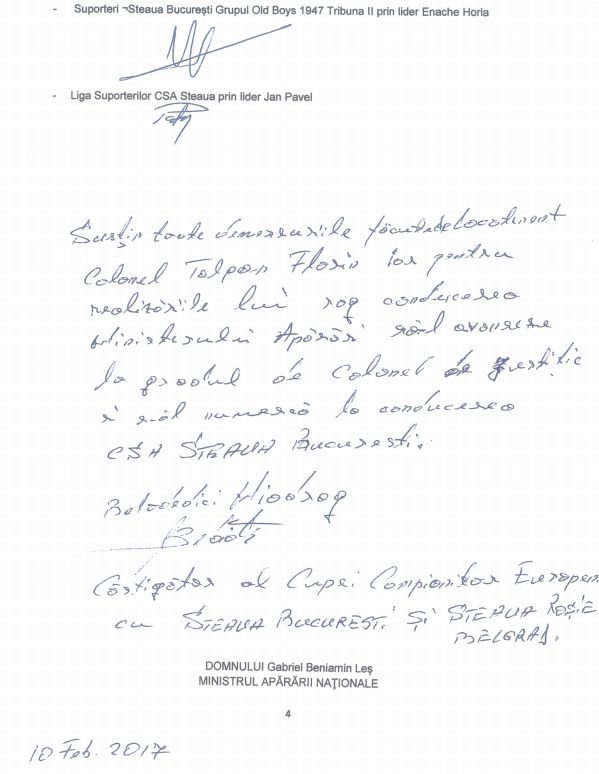 - Suporteri ¬Steaua București Grupul Old Boys 1947 Tribuna II prin lider Enache Horia
- Liga Suporterilor CSA Steaua prin lider Jan Pavel
Susțin toate demersurile făcute de locotenent
Colonel Talpan Florin iar pentru
realizările lui rog conducerea
Ministerului Apărări să-l avanseze
la gradul de Colonel de justiție
și să-l numească la conducerea
CSA STEAUA București.
Belodedici Miodrag
Câștigător al Cupei Campionilor Europeni
cu STEAUA BUCUREȘTI ȘI STEAUA ROȘIE
BELGRAD.
DOMNULUI Gabriel Beniamin Leș
MINISTRUL APĂRĂRII NAȚIONALE
4
10 Feb. 2017